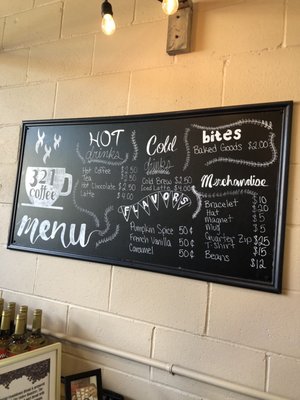 321
coffee
menu
HOT
drinks
Hot Coffee $2.50
Tea $2.50
Hot Chocolate $2.50
Latte $4.00
Cold
drinks
Cold Brew $2.50
Iced Latte $4.00
FLAVORS
Pumpkin Spice 50¢
French Vanilla 50¢
Caramel 50¢
bites
Baked Goods $2.00
Merchandise
Bracelet $10
Hat $20
Magnet $5
Mug $5
Quarter Zip $25
T-Shirt $15
Beans $12